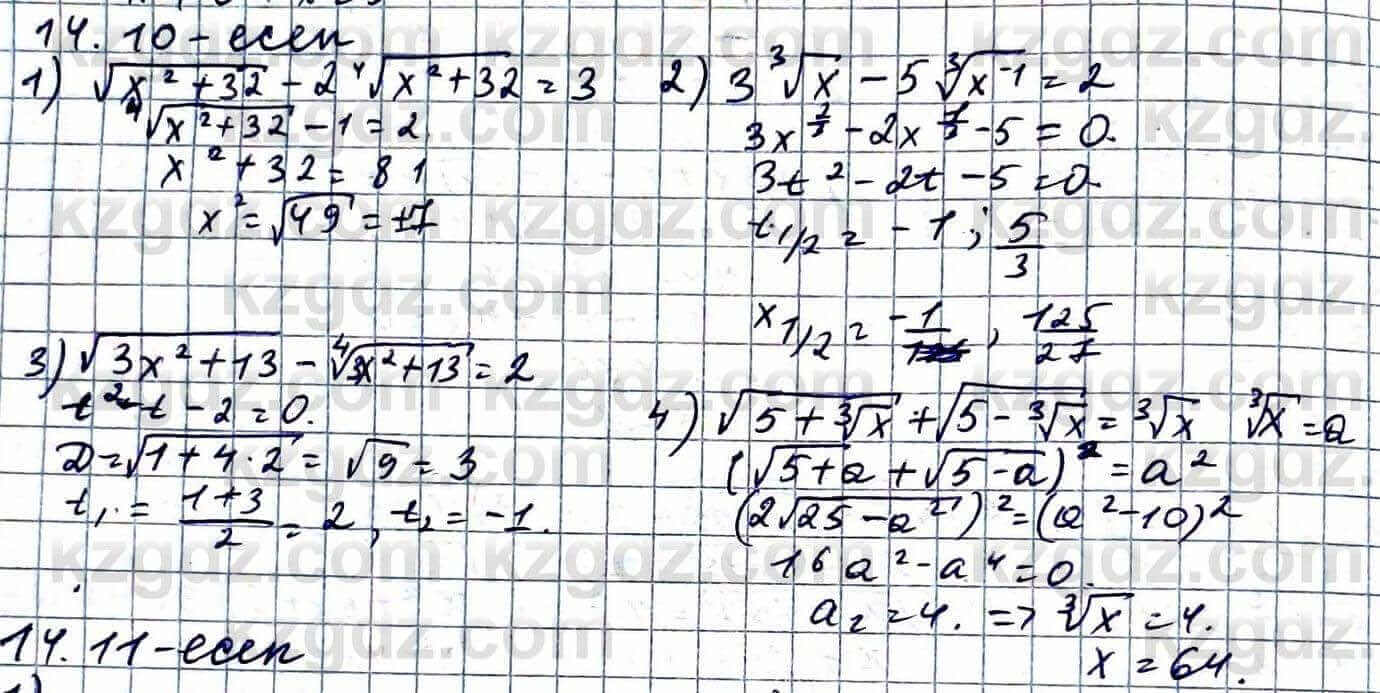 14.10-есеп
1) √(x² + 32) - 2 ⁴√(x² + 32) = 3
⁴√(x² + 32) - 1 = 2
x² + 32 = 81
x² = √49 = ±7
2) 3 ³√x - 5 ³√(x⁻¹) = 2
3x^(2/3) - 2x^(1/3) - 5 = 0.
3t² - 2t - 5 = 0.
t₁/₂ = -1; 5/3
x₁/₂ = -1, 125/27
3) √(3x² + 13) - ⁴√(3x² + 13) = 2
t² - t - 2 = 0.
D = √(1 + 4·2) = √9 = 3
t₁ = (1+3)/2 = 2, t₂ = -1.
4) √(5 + ³√x) + √(5 - ³√x) = ³√x ³√x = a
(√(5+a) + √(5-a))² = a²
(2√(25 - a²))² = (a² - 10)²
16a² - a⁴ = 0.
a₂ = 4. => ³√x = 4.
x = 64.
14.11-есеп
kzgdz.com